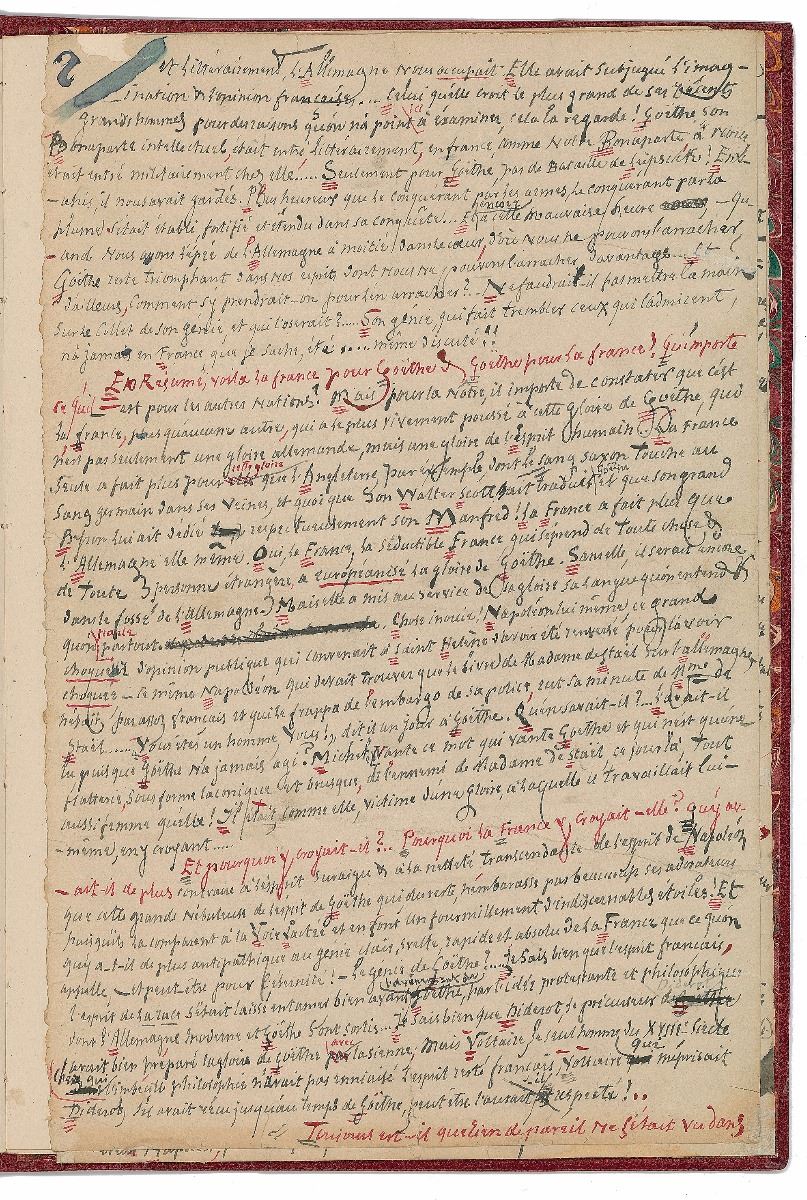 2
et littérairement, L'Allemagne nous occupait. Elle avait subjugué l'imag-
-ination & l'opinion françaises.... Celui qu'elle croit le plus grand de ses
grands hommes pour des raisons qu'on n'a point ici à examiner, cela la regarde! Goëthe, son
Bonaparte intellectuel, était entré littérairement, en france, comme Notre Bonaparte, à nous
était entré militairement chez elle..... Seulement pour Goëthe, pas de Bataille de Leipsick! Entré
chés, il nous avait gardés. Plus heureux que le conquérant par les armes, le conquérant par la
plume s'était établi, fortifié et étendu dans sa conquête... Et à cette mauvaise heure encore, - Qu-
-and Nous avons l'épée de l'Allemagne à moitié dans le cœur, d'où nous ne pouvons l'arracher,
Goëthe reste triomphant dans nos esprits dont nous ne pouvons l'arracher davantage... Et
d'ailleurs, comment s'y prendrait-on pour l'en arracher?... Ne faudrait-il pas mettre la main
sur le Collet de son génie et qui l'oserait?.... Son génie, qui fait trembler ceux qui l'admirent,
n'a jamais, en France que je sache, été .... même discuté!!
En Résumé, voilà la france pour Goëthe & Goëthe pour la france! Qu'importe
ce qu'il est pour les autres Nations! Mais pour la Nôtre, il importe de constater que c'est
la france, plus qu'aucune autre, qui a le plus vivement poussé à cette gloire de Goëthe, qui
n'est pas seulement une gloire allemande, mais une gloire de l'esprit humain. La France
seule a fait plus pour cette gloire que l'Angleterre, par exemple, dont le sang saxon touche au
sang germain dans ses veines, et quoique son Walter Scott ait traduit Goëthe et que son grand
Byron lui ait dédié respectueusement son Manfred! La France a fait plus que
l'Allemagne elle même. Oui, la France, la séductible France qui s'éprend de toute chose &
de toute personne étrangère, a européanisé la gloire de Goëthe. Sans elle, il serait encore
dans le fossé de l'Allemagne. Mais elle a mis au service de sa gloire sa langue qu'on entend &
qu'on parle partout. Chose inouïe! Napoléon lui même, ce grand
choqueur d'opinion publique qui convenait à Saint Hélène d'avoir été renversé pour l'avoir
choquée - ce même Napoléon qui devait trouver que le livre de Madame de Staël sur l'allemagne
n'était pas assez français et qui le frappa de l'embargo de sa police, eut sa minute de Mme de
Staël..... Vous êtes un homme, Vous!, dit-il un jour à Goëthe. Qu'en savait-il?...
puisque Goëthe n'a jamais agi? Michelet vante ce mot qui vante Goëthe et qui n'est qu'une
flatterie, sous forme laconique et brusque, de l'ennemi de Madame de Staël ce jour là, tout
aussi femme qu'elle! Il était, comme elle, victime d'une gloire, à laquelle il travaillait lui-
-même, en y croyant.....
Et pourquoi y croyait-il?.. Pourquoi la France y croyait-elle? Qu'y av-
-ait-il de plus contraire à l'esprit suraigu & à la netteté transcendante de l'esprit de Napoléon
que cette grande Nébuleuse de l'esprit de Goëthe qui du reste, n'embarasse pas beaucoup ses adorateurs
puisqu'ils la comparent à la Voie Lactée et en font un fourmillement d'indiscernables étoiles! Et
qu'y a-t-il de plus antipathique au génie clair, svelte, rapide et absolu de la France que ce qu'on
appelle, - et peut être pour l'éternité! - le génie de Goëthe?.... Je sais bien que l'esprit français,
l'esprit de la race s'était laissé entamer bien avant Goëthe, par les idées protestante et philosophique
dont l'Allemagne moderne et Goëthe sont sortis.... Je sais bien que Diderot, le précurseur de Goëthe
avait bien préparé la gloire de Goëthe avec la sienne, mais Voltaire, le seul homme du XVIIIe Siècle
chez qui l'imbécile philosophie n'avait pas ennuagé l'esprit resté français, Voltaire qui méprisait
Diderot, s'il avait vécu jusqu'au temps de Goëthe, peut être l'aurait-il respecté!..
Toujours est-il que rien de pareil ne s'était vu dans